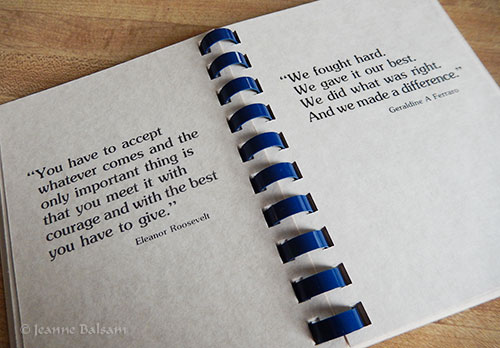 “You have to accept
whatever comes and the
only important thing is
that you meet it with
courage and with the best
you have to give.”
Eleanor Roosevelt
“We fought hard.
We gave it our best.
We did what was right.
And we made a difference.”
Geraldine A Ferraro
© Jeanne Balsam